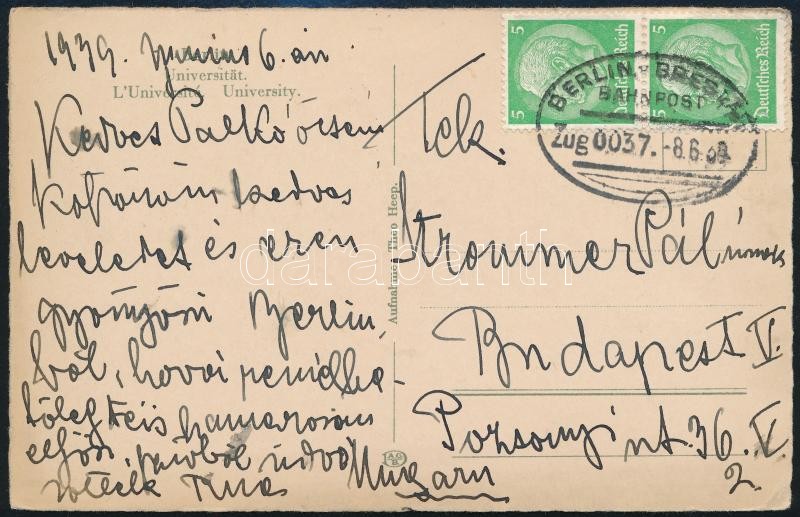 1939. junius 6.-án
Universität.
L'Université. University.
Kedves Palkó öcsém
kedves
leveledet és ezen
gyönyörű Berlin-
ből, hová remélhe-
tőleg Te is hamarosan
eljösz,
Aufnahme: Theo Heep.
5 Deutsches Reich
5 Deutsches Reich
BERLIN - BRESLAU
BAHNPOST
Zug 0037. -8.6.39
Tek.
Strommer Pál úrnak
Budapest V.
Pozsonyi út. 36. IV.
2.
Ungarn
darabanth